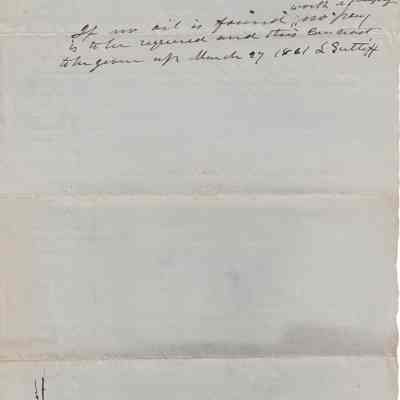 worth
If no oil is found, no pay
is to be required and this Contract
to be given up March 27 1861 L Sutliff